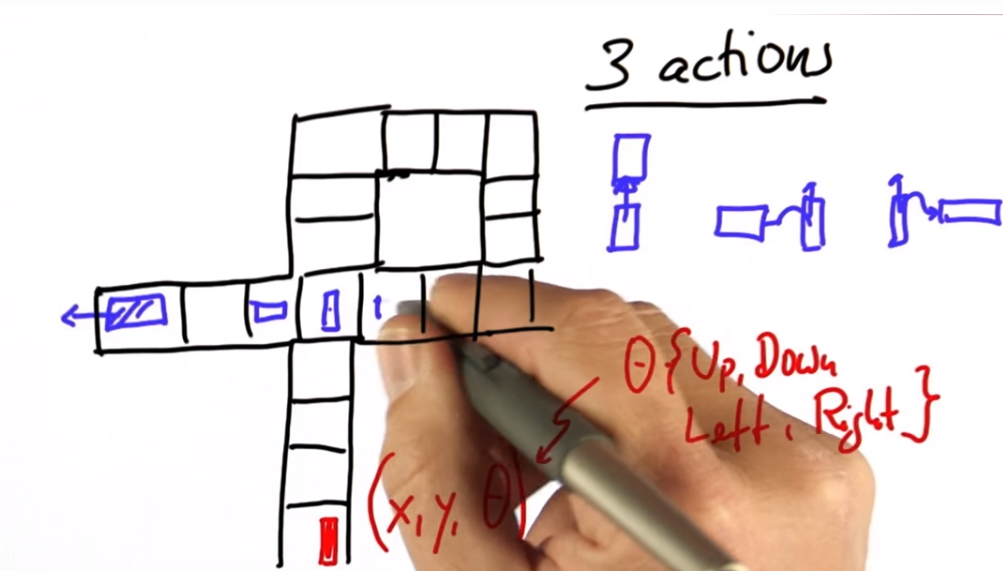 3 actions
θ{Up, Down
Left, Right}
(x, y, θ)